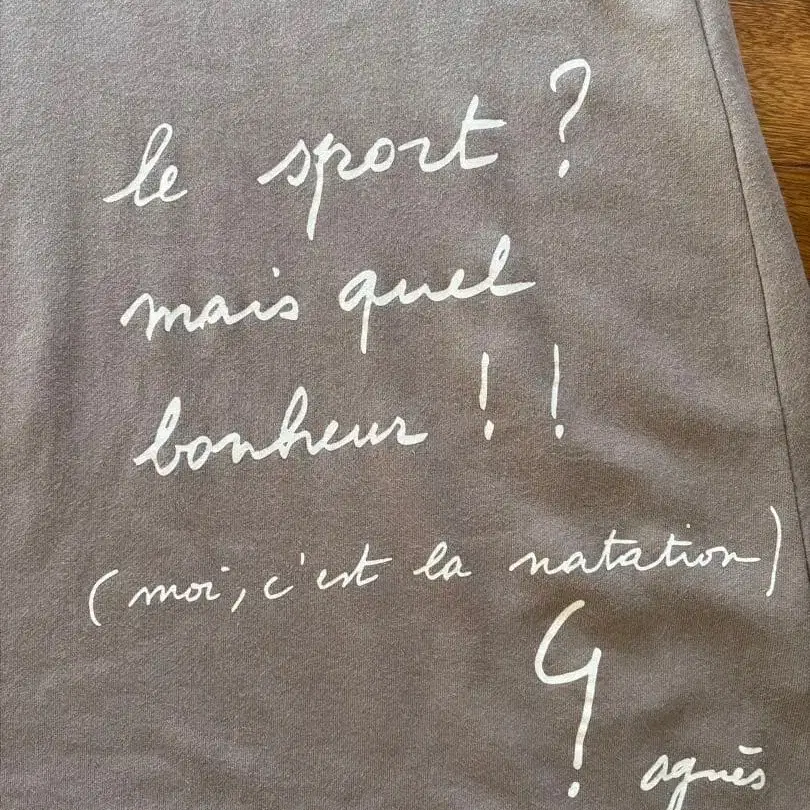 le sport ?
mais quel
bonheur ! !
(moi, c'est la natation)
agnès